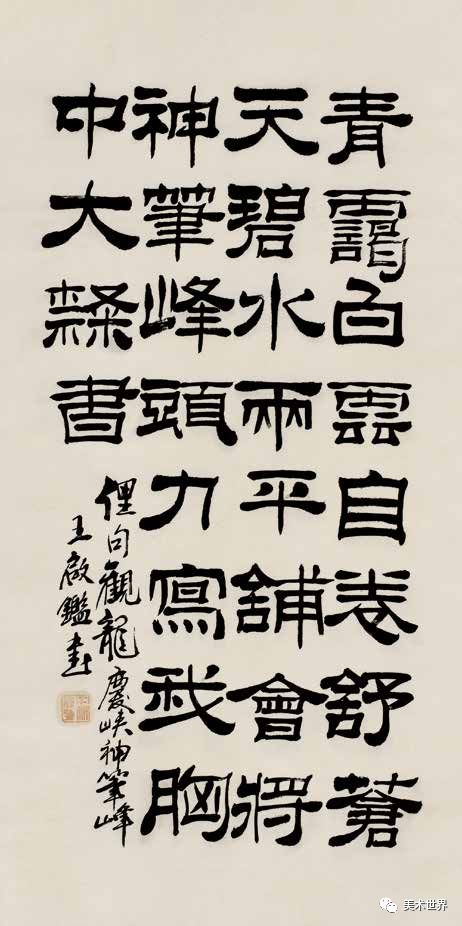 青靄白雲自卷舒蒼
天碧水兩平舖會將
神筆峰頭力寫我胸
中大隸書
俚句觀龍慶峽神筆峰
王啟鑑書
美术世界